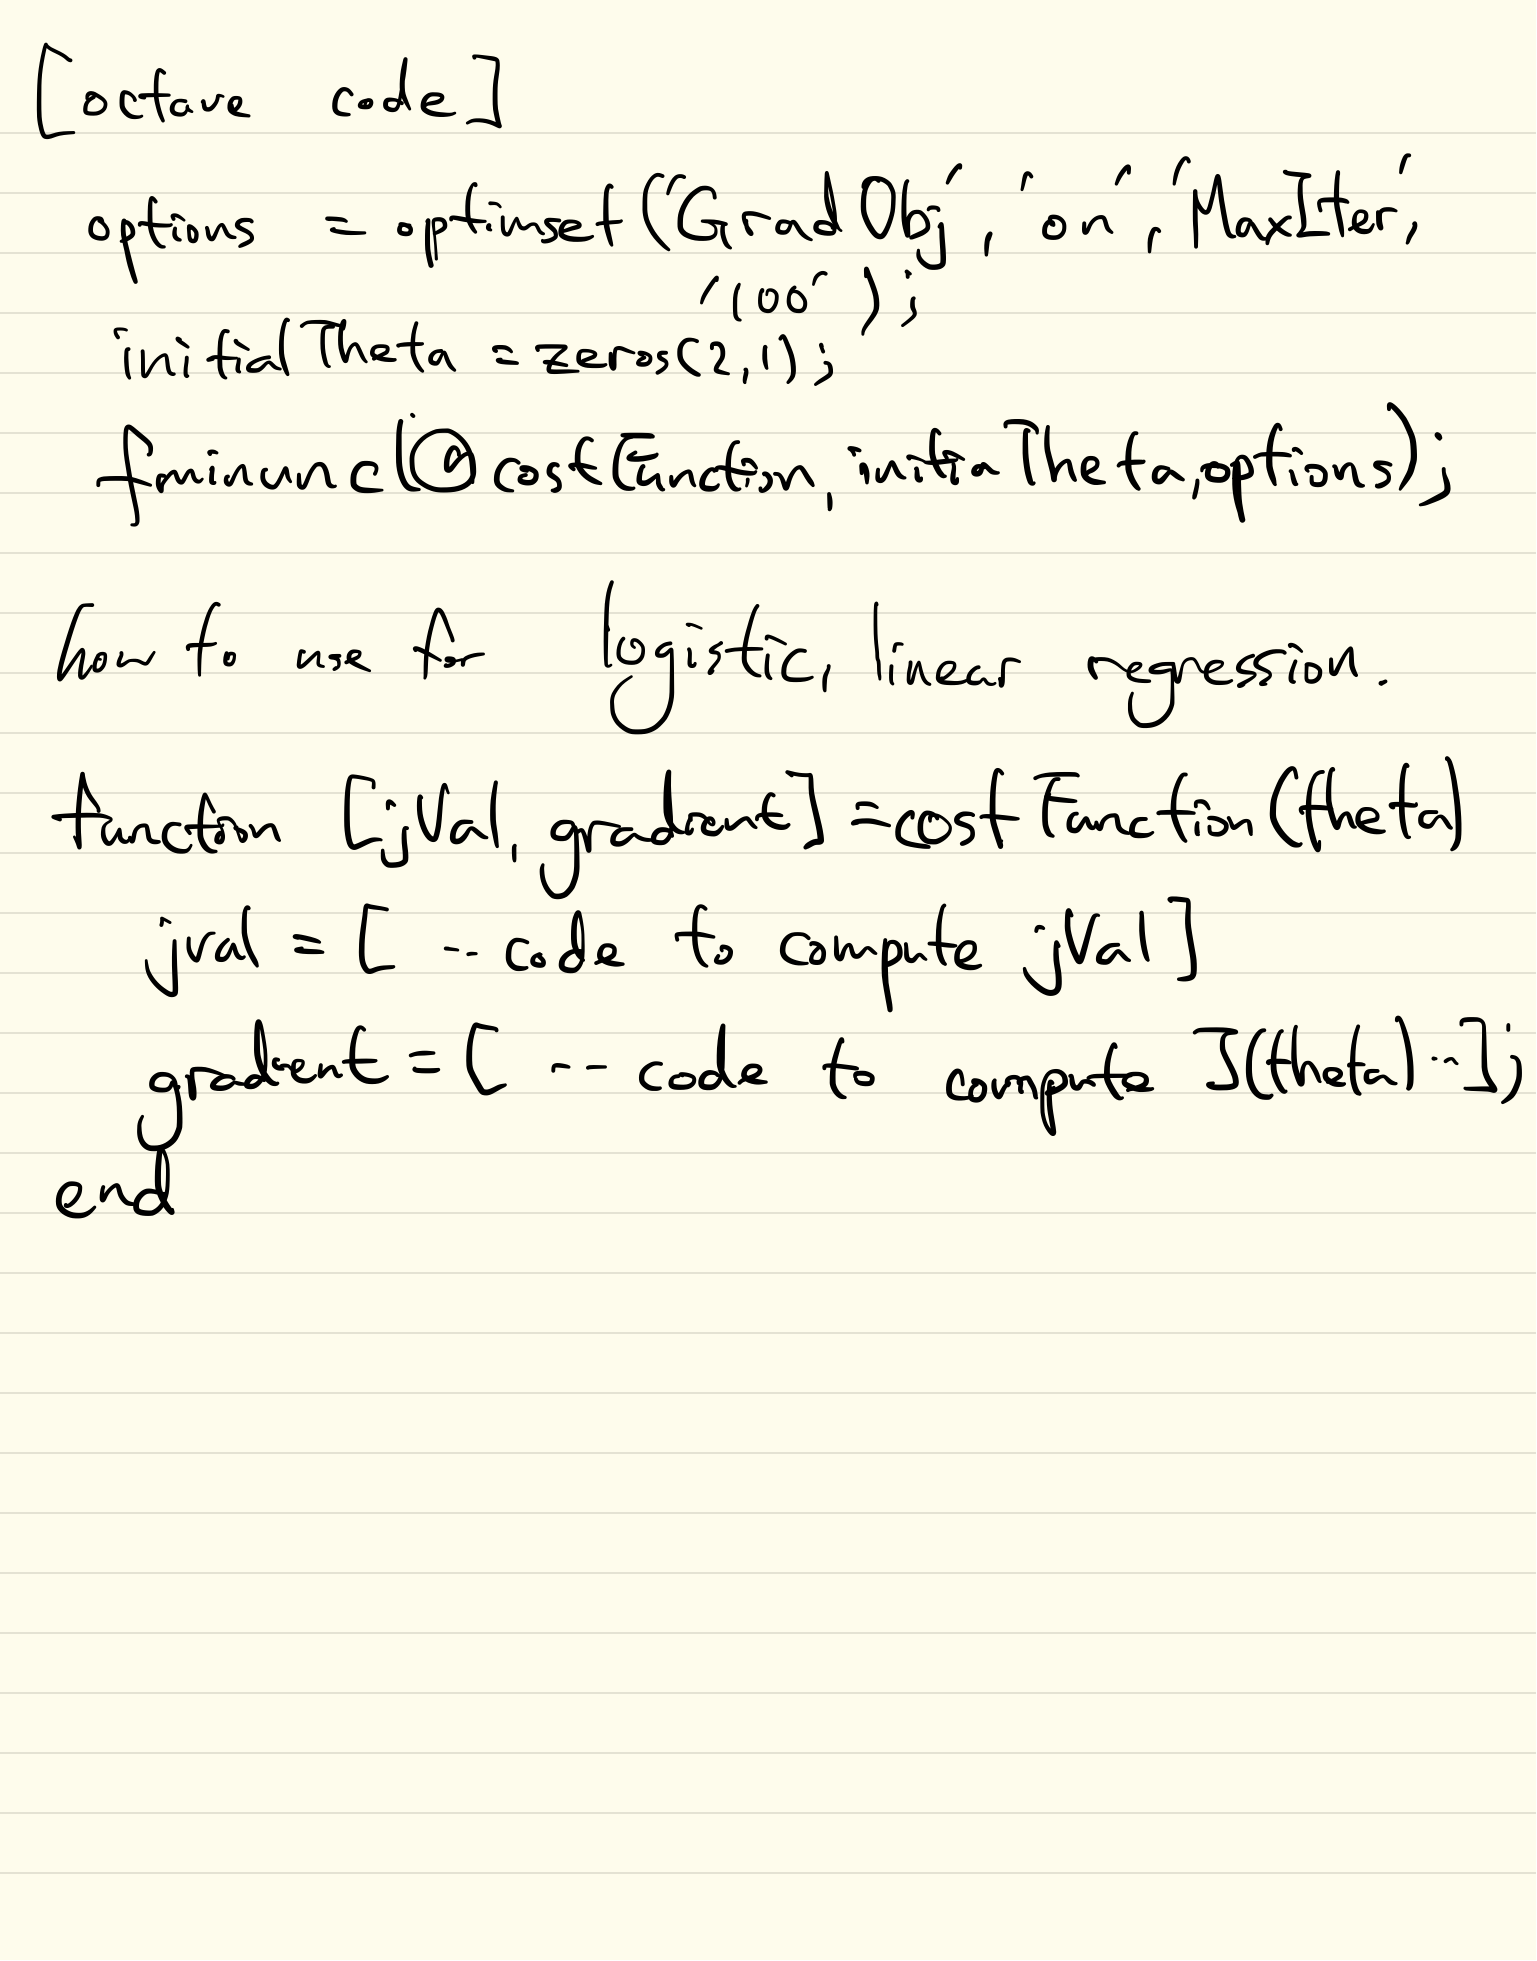 [octave code]
options = optimset('GradObj', 'on', 'MaxIter',
'100');
initialTheta = zeros(2,1);
fminunc(@costFunction, initiaTheta, options);
how to use for logistic, linear regression.
function [jVal, gradient] = costFunction(theta)
jval = [ -- code to compute jVal]
gradient = [ -- code to compute J(theta) --];
end